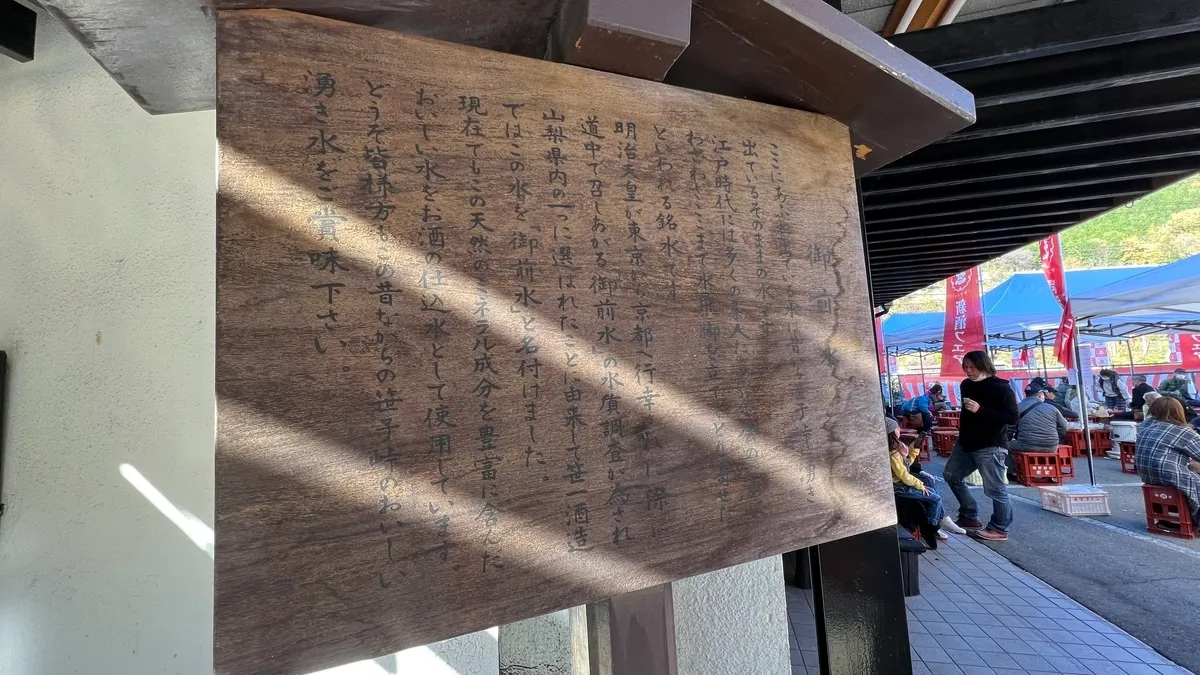 御前水
ここにあふれ出ている水は昔から笹子峠に湧き
出ているそのままの水
江戸時代には多くの
わざわざここまで水を
といわれる銘水です
明治天皇が東京から京都へ行幸
道中で召しあがる御前水の水質調査が為され
山梨県内の一つに選ばれたことに由来して笹一酒造
ではこの水を「御前水」と名付けました。
現在でもこの天然のミネラル成分を豊富に含んだ
おいしい水をお酒の仕込水として使用しています。
どうぞ皆様方もこの昔ながらの笹子峠のおいしい
湧き水をご賞味下さい。
新酒フェア